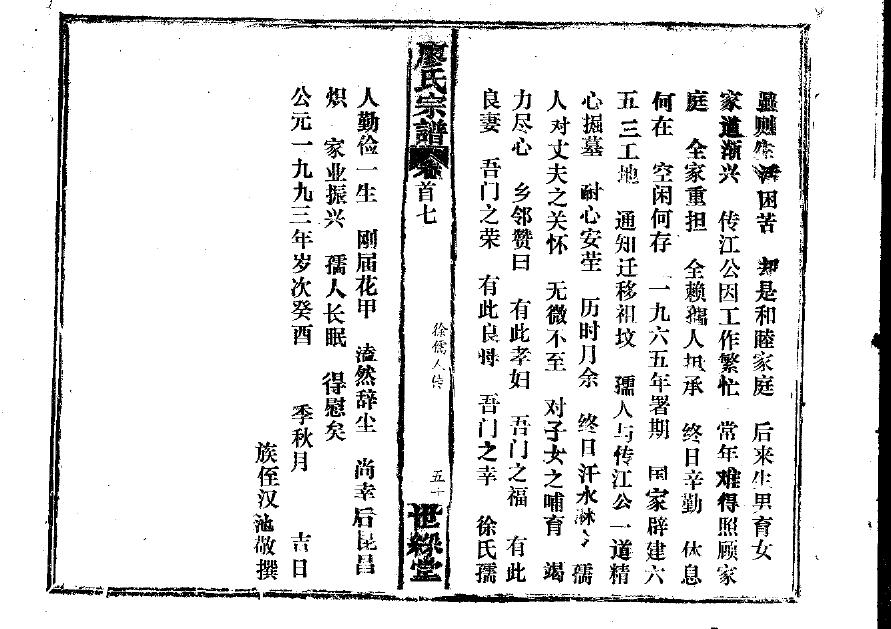 虽则生活困苦 却是和睦家庭 后来生男育女
家道渐兴 传江公因工作繁忙 常年难得照顾家
庭 全家重担 全赖孺人抵承 终日辛勤 休息
何在 空闲何存 一九六五年署期 国家辟建六
五三工地 通知迁移祖坟 孺人与传江公一道精
心掘墓 耐心安茔 历时月余 终日汗水淋〻 孺
人对丈夫之关怀 无微不至 对子女之哺育 竭
力尽心 乡邻赞曰 有此孝妇 吾门之福 有此
良妻 吾门之荣 有此良母 吾门之幸 徐氏孺
廖氏宗譜 卷首七
徐儒人传
五十
世綵堂
人勤俭一生 刚届花甲 溘然辞尘 尚幸后昆昌
炽 家业振兴 孺人长眠 得慰矣
公元一九九三年岁次癸酉 季秋月 吉日
族侄汉池敬撰